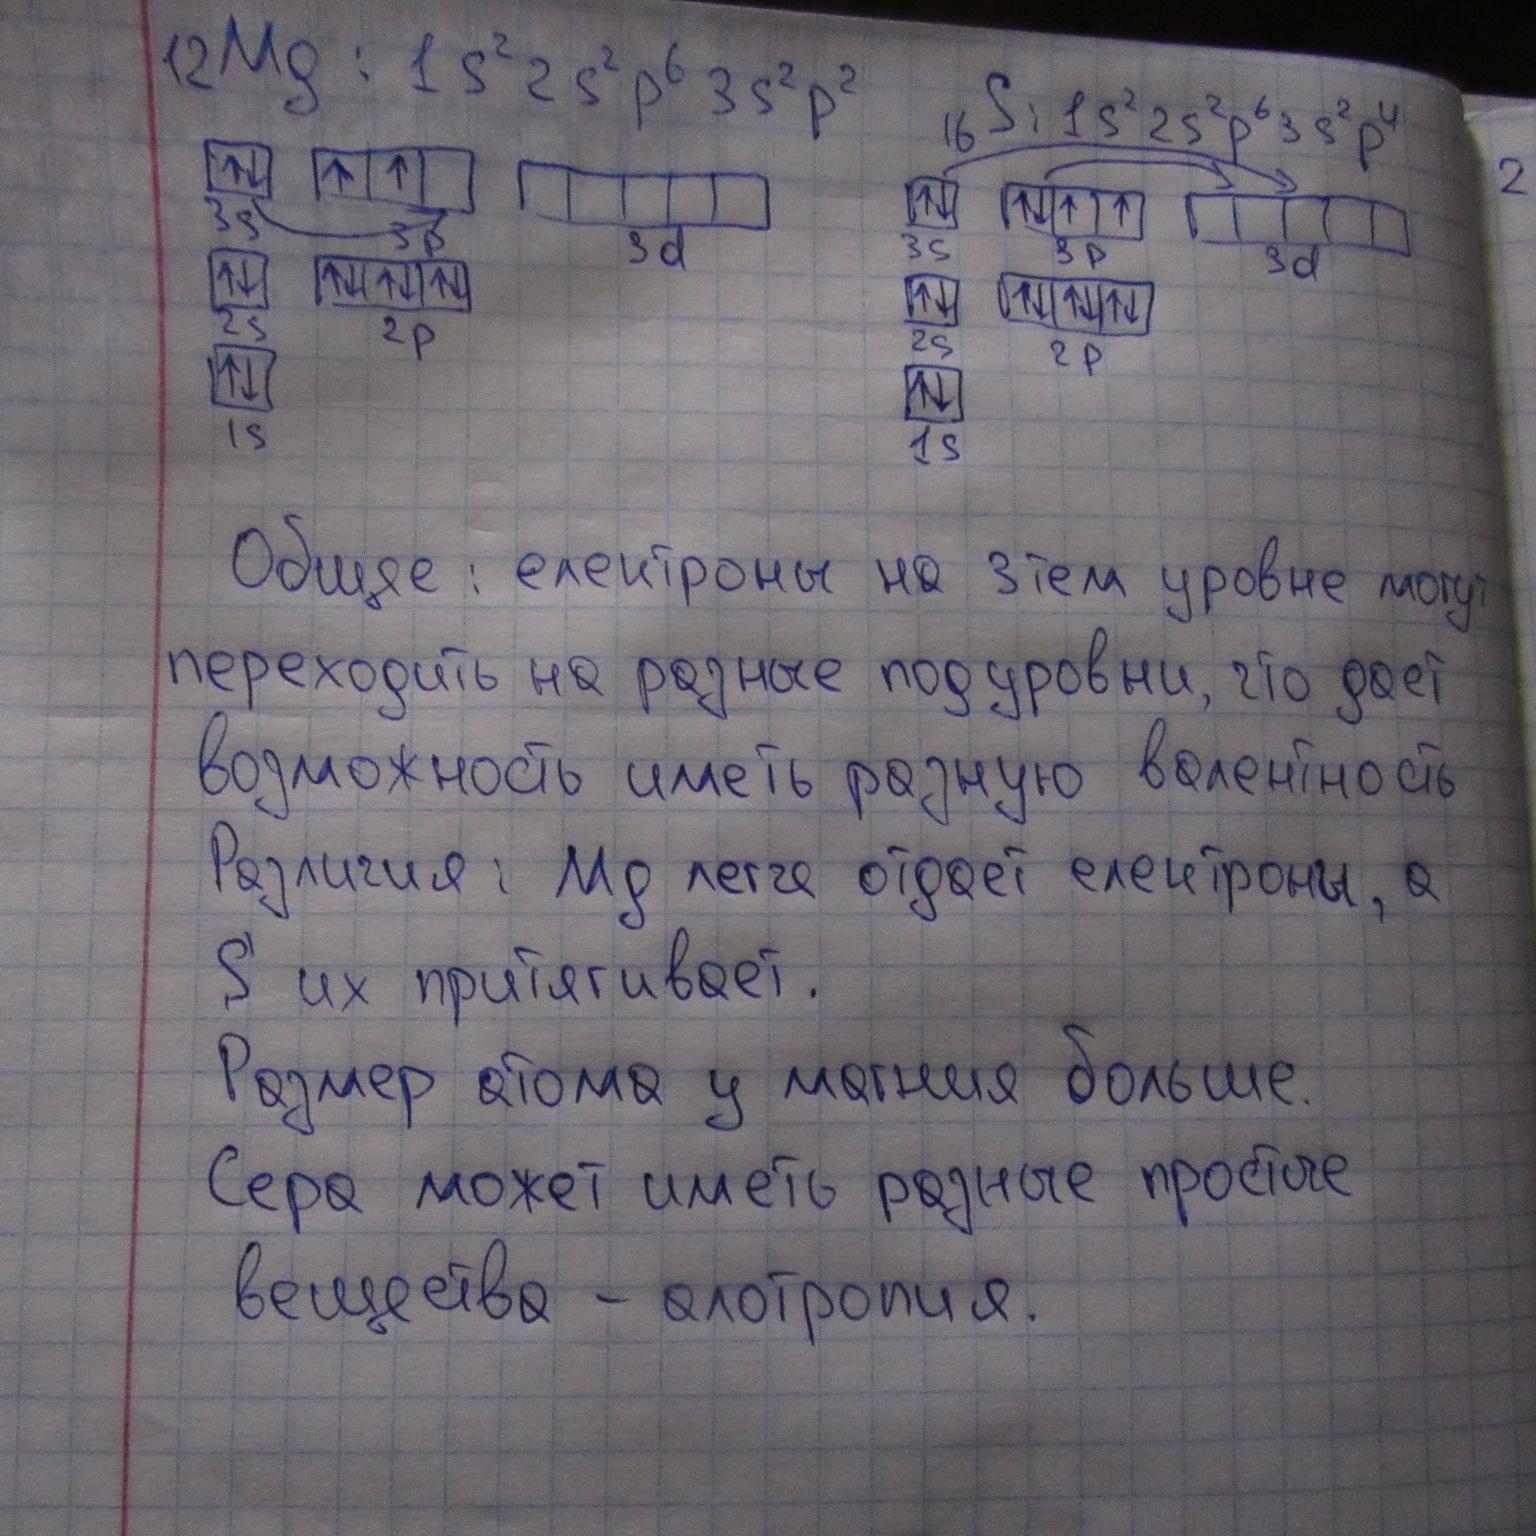 12Mg : 1s²2s²p⁶3s²p²
16S: 1s²2s²p⁶3s²p⁴
2
3s 3p 3d
3s 3p 3d
2s 2p
2s 2p
1s
1s
Общее : електроны на 3тем уровне могут
переходить на разные подуровни, что дает
возможность иметь разную валентность
Различия: Mg легче отдает електроны, а
S их притягивает.
Размер атома у магния больше.
Сера может иметь разные простые
вещества - алотропия.